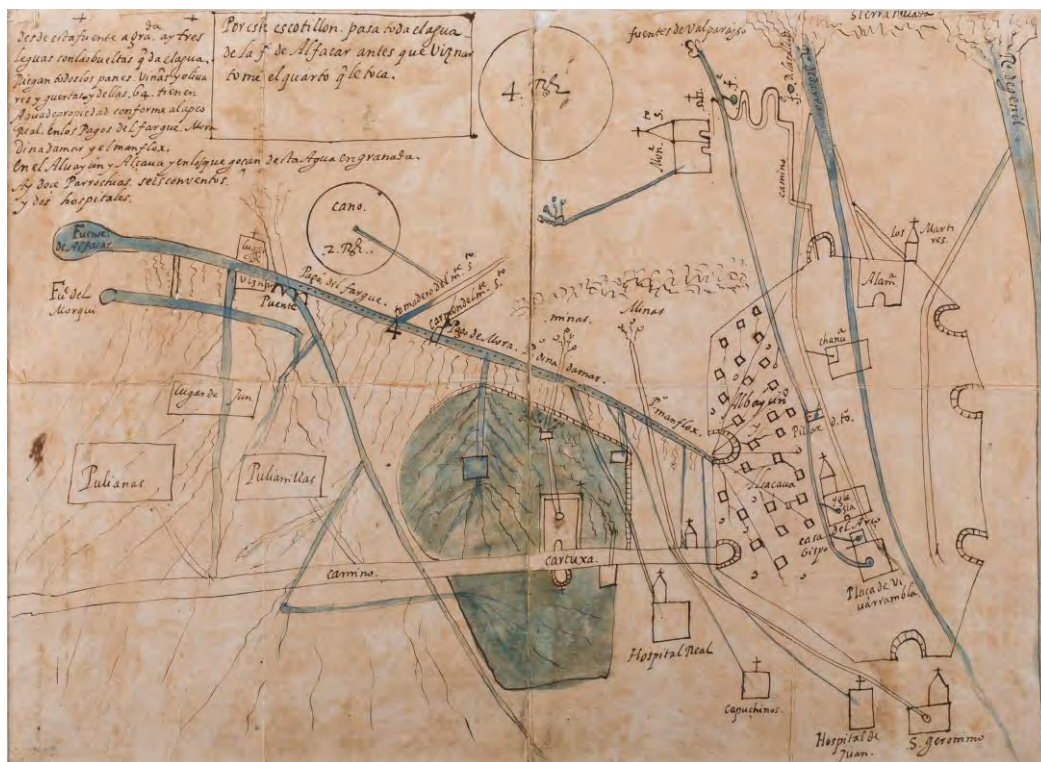 Desde esta fuente a gra.da ay tres
leguas con las bueltas q̃ da el agua.
Riegan todos los panes. Viñas y oliua
res y guertas y dellas. 64. tienen
Agua de propiedad conforme al apeo
Real. en los Pagos del Fargue. Mora
Dinadamar y el manflox.
En el Aluayzin y Alcaua y en los que goçan desta Agua en granada.
Ay doce Parrochias. seis conventos.
y dos hospitales.
Por este escotillon. pasa toda el agua
de la f.e de Alfacar antes que Viznar
tome el quarto q̃ le toca.
4. Rs
cano.
2. Rs.
fuentes de Valparayso
Sierra neuada
Rio de genil
camino
Mon.o
S.
Fuente
de Alfacar
Fu.e del
Morqui
Lugar
de
Vizna
Puente
Pago del Fargue.
tomadero del m.te S.to
4
carmen del m.te S.to
Pago de Mora.
dinadamar.
P.o manflox.
minas.
Minas
lugar de Jun
Pulianas
Pulianillas
camino.
cartuxa.
Los Marti
res.
Alam.a
chanc.a
Albayzin
Pilar d. to.
Alcacaua
casa
Gispo
ygle
sia
del Arço
Placa de Vi
uarrambla
Hospital Real
Capuchinos.
Hospital de
Juan.
S. Geronimo